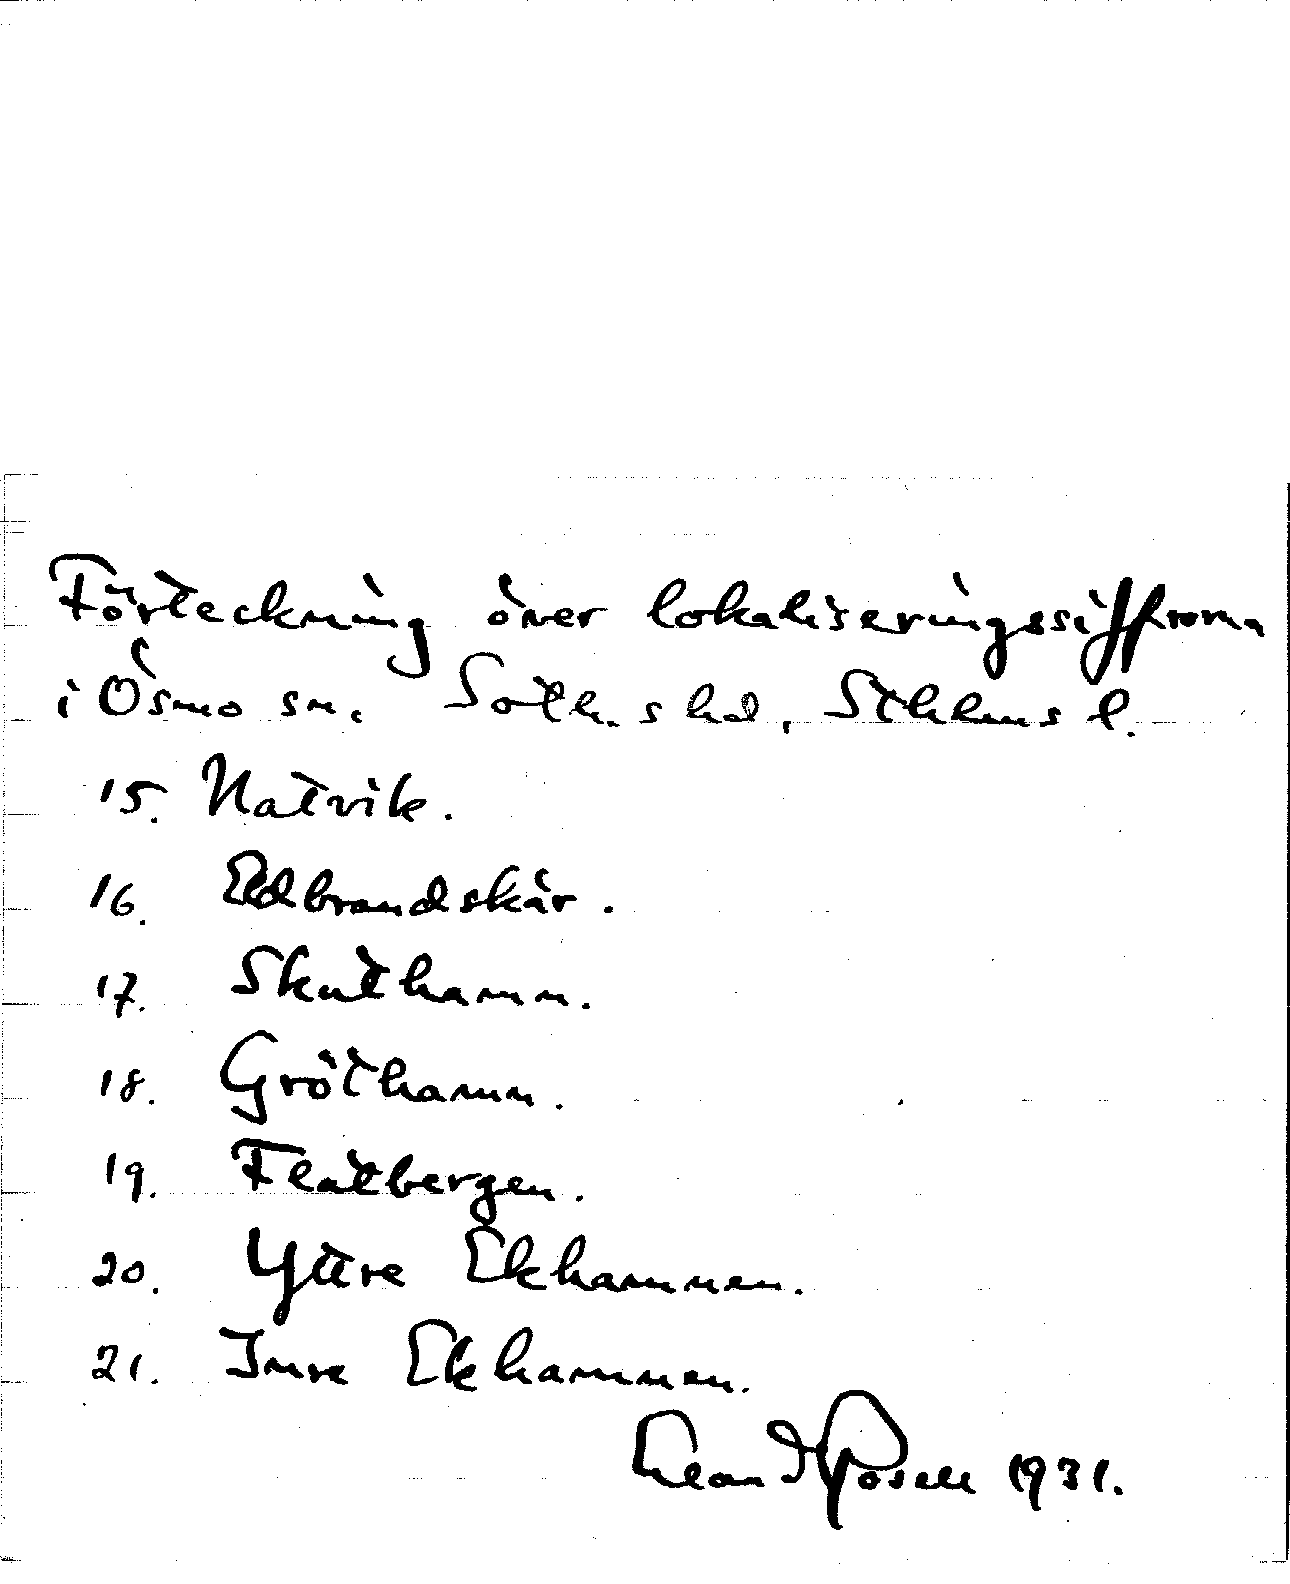 Förteckning över lokaliseringssiffrorna
i Ösmo sn. Soth.s hd, Sthlms l.
15. Natvik.
16. Eldbrandskär.
17. Skuthamn.
18. Gröthamn.
19. Flatbergen.
20. Yttre Ekhamnen.
21. Inre Ekhamnen.
1931.